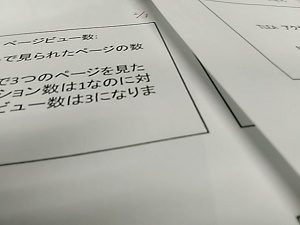 ページビュー数:
で見られたページの数
で3つのページを見た
ション数は1なのに対
ビュー数は3になりま